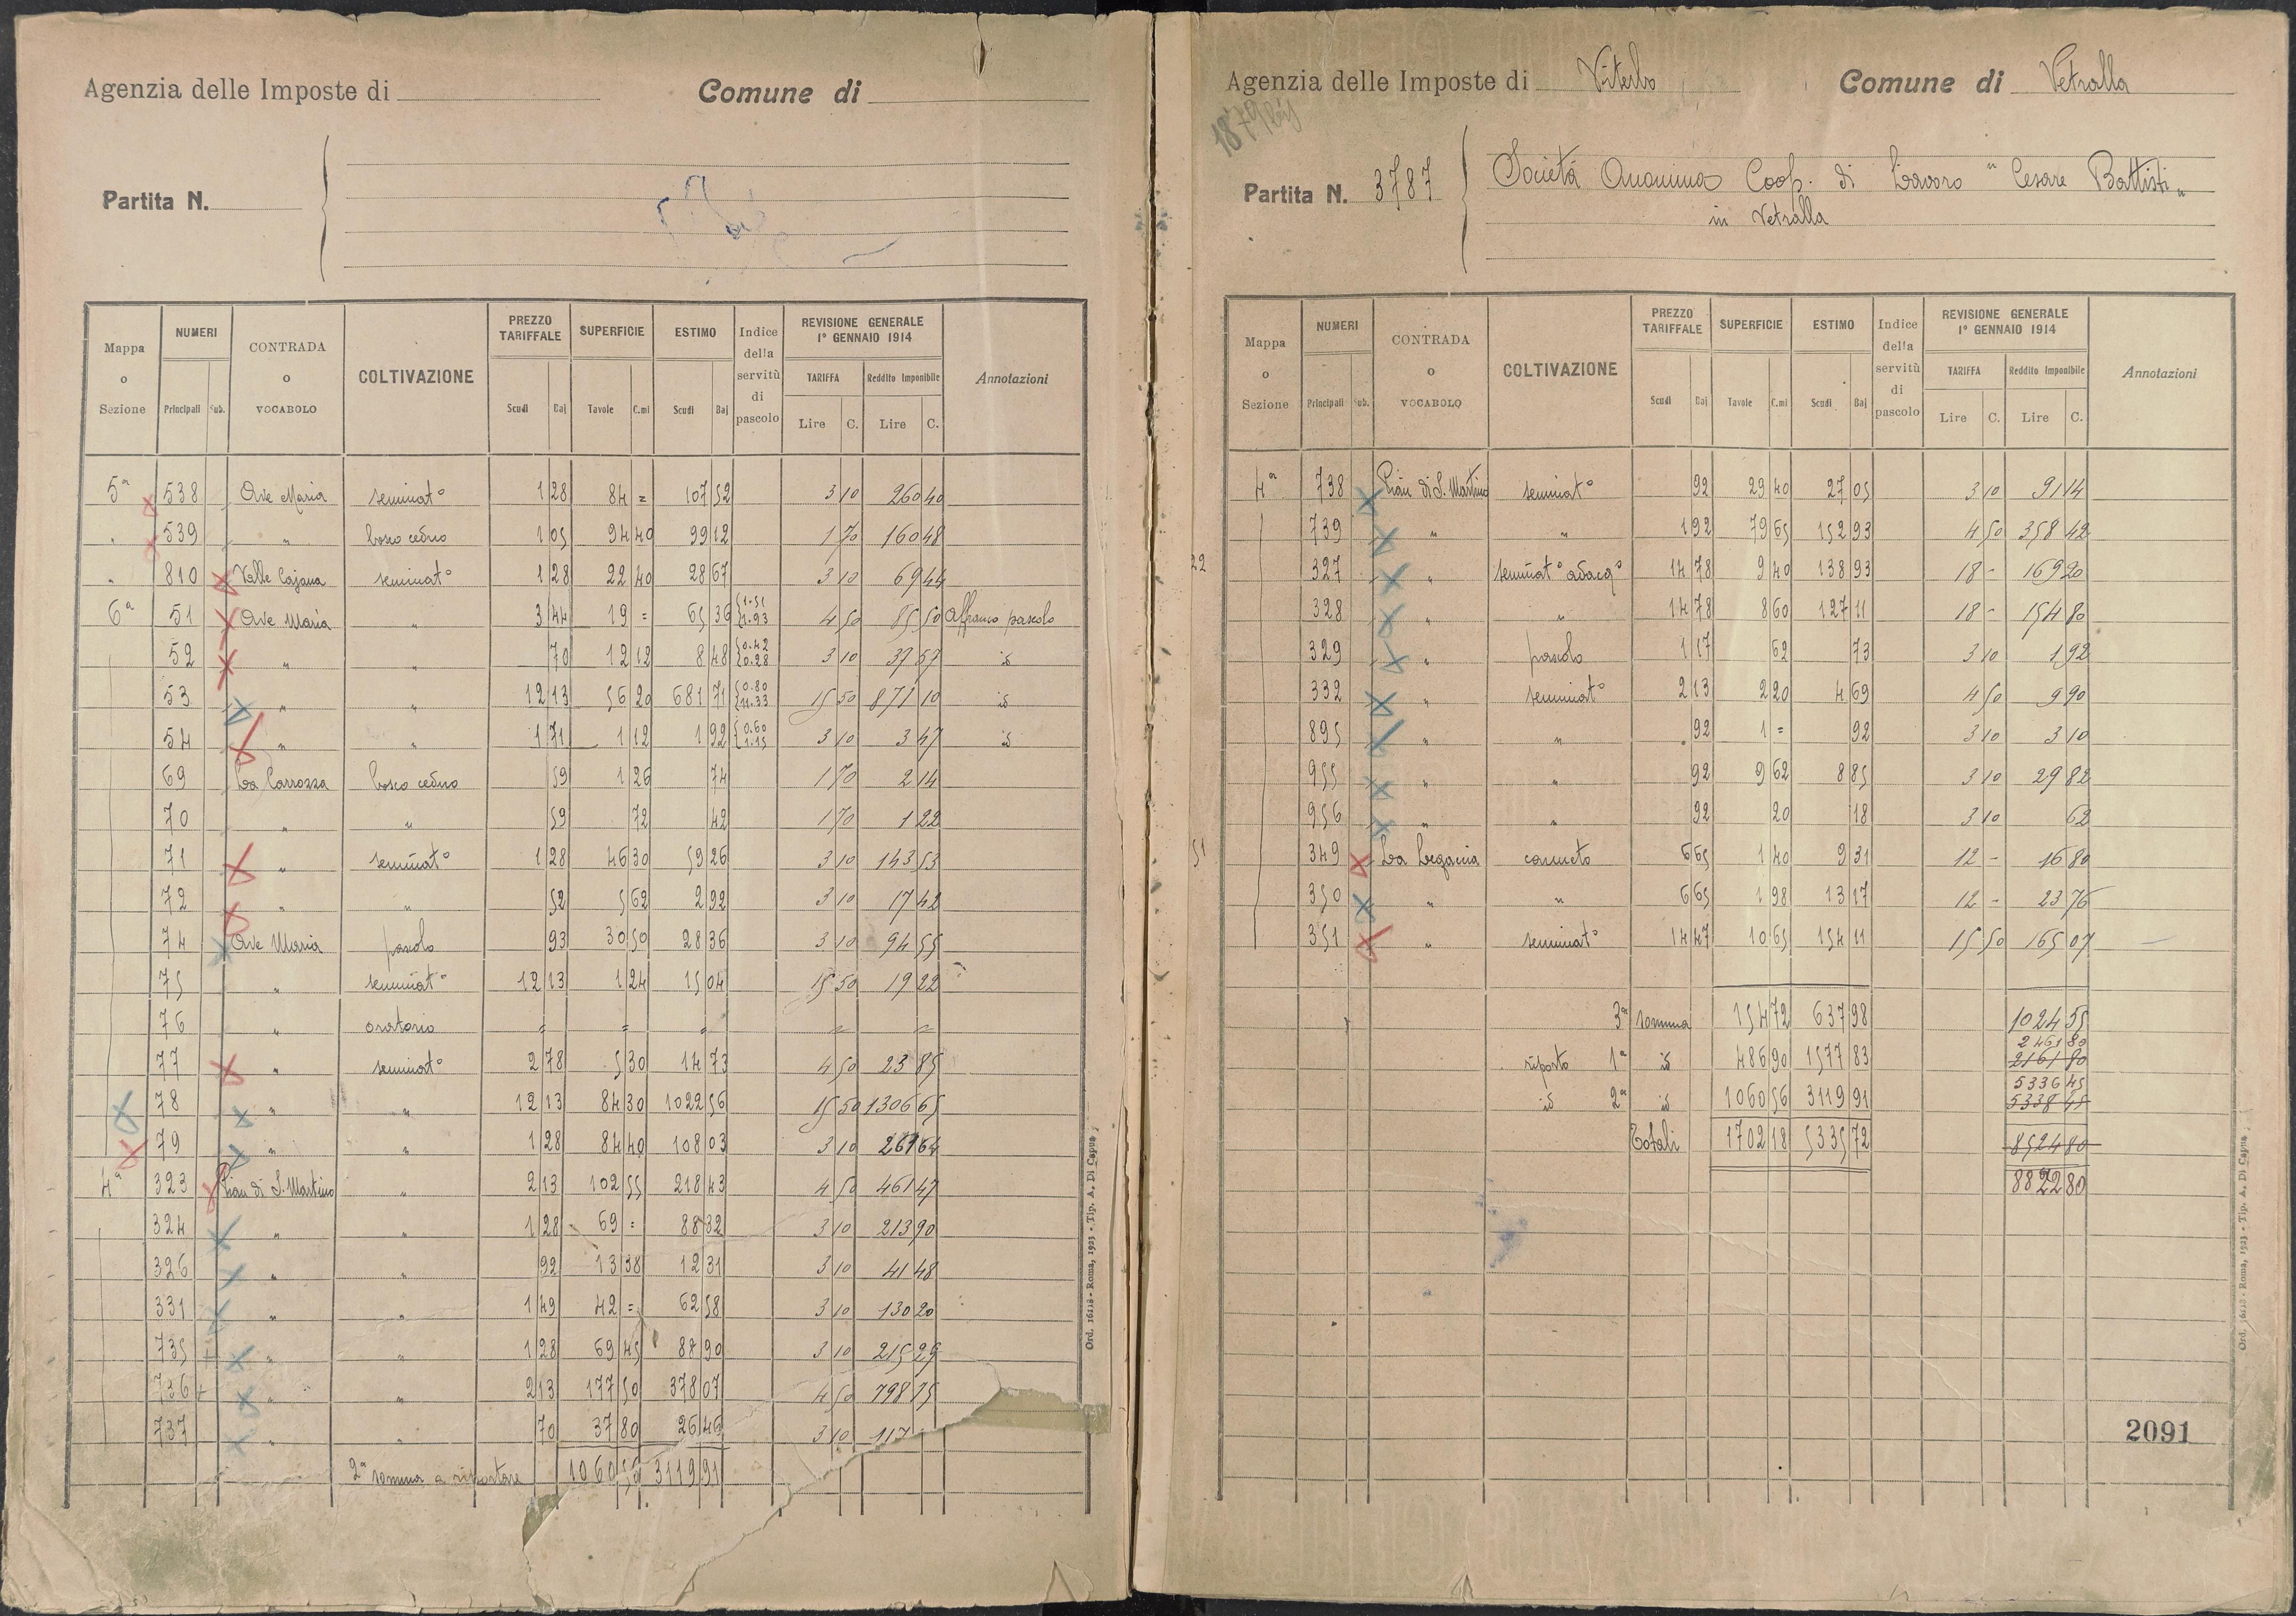 Agenzia delle Imposte di
Comune di
Partita N.
Mappa o Sezione | NUMERI Principali Sub. | CONTRADA o VOCABOLO | COLTIVAZIONE | PREZZO TARIFFALE Scudi Baj | SUPERFICIE Tavole C.mi | ESTIMO Scudi Baj | Indice della servitù di pascolo | REVISIONE GENERALE 1° GENNAIO 1914 TARIFFA Lire C. Reddito Imponibile Lire C. | Annotazioni
5ª 538 Ave Maria seminat° 1 28 84 = 107 52 3 10 260 40
" 539 " bosco ceduo 1 05 94 40 99 12 1 70 160 48
" 810 Valle Cajana seminat° 1 28 22 40 28 67 3 10 69 44
6ª 51 Ave Maria " 3 44 19 = 65 36 1.51 1.93 4 50 85 50 Affranco pascolo
52 " " 70 12 12 8 48 0.42 0.28 3 10 37 57 id
53 " " 12 13 56 20 681 71 0.80 11.33 15 50 871 10 id
54 " " 1 71 1 12 1 92 0.60 1.15 3 10 3 47 id
69 La Carrozza bosco ceduo 59 1 26 74 1 70 2 14
70 " " 59 72 42 1 70 1 22
71 " seminat° 1 28 46 30 59 26 3 10 143 53
72 " " 52 5 62 2 92 3 10 17 42
74 Ave Maria pascolo 93 30 50 28 36 3 10 94 55
75 " seminat° 12 13 1 24 15 04 15 50 19 22
76 " oratorio = = = = =
77 " seminat° 2 78 5 30 14 73 4 50 23 85
78 " " 12 13 84 30 1022 56 15 50 1306 65
79 " " 1 28 84 40 108 03 3 10 261 64
4ª 323 Pian di S. Martino " 2 13 102 55 218 43 4 50 461 47
324 " " 1 28 69 = 88 32 3 10 213 90
326 " " 92 13 38 12 31 3 10 41 48
331 " " 1 49 42 = 62 58 3 10 130 20
735 " " 1 28 69 45 88 90 3 10 215 29
736 + " " 2 13 177 50 378 07 4 50 798 75
737 " " 70 37 80 26 46 3 10 117
2ª somma a riportare 1060 56 3119 91
Ord. 16118 - Roma, 1923 - Tip. A. Di Capua
Agenzia delle Imposte di Viterbo
Comune di Vetralla
1879 bis
Partita N. 3787
Società Anonima Coop. di Lavoro " Cesare Battisti "
in Vetralla
Mappa o Sezione | NUMERI Principali Sub. | CONTRADA o VOCABOLO | COLTIVAZIONE | PREZZO TARIFFALE Scudi Baj | SUPERFICIE Tavole C.mi | ESTIMO Scudi Baj | Indice della servitù di pascolo | REVISIONE GENERALE 1° GENNAIO 1914 TARIFFA Lire C. Reddito Imponibile Lire C. | Annotazioni
4ª 738 Pian di S. Martino seminat° 92 29 40 27 05 3 10 91 14
739 " " 1 92 79 65 152 93 4 50 358 42
22 327 " seminat° adacq° 14 78 9 40 138 93 18 - 169 20
328 " " 14 78 8 60 127 11 18 - 154 80
329 " pascolo 1 17 62 73 3 10 1 92
332 " seminat° 2 13 2 20 4 69 4 50 9 90
895 " " 92 1 = 92 3 10 3 10
955 " " 92 9 62 8 85 3 10 29 82
956 " " 92 20 18 3 10 62
51 349 La Legaccia canneto 6 65 1 40 9 31 12 - 16 80
350 " " 6 65 1 98 13 17 12 - 23 76
351 " seminat° 14 47 10 65 154 11 15 50 165 07
3ª somma 154 72 637 98 1024 55
2461 80
riporto 1ª id 486 90 1577 83 2161 80
5336 45
id 2ª id 1060 56 3119 91 5338 45
Totali 1702 18 5335 72 8524 80
8822 80
2091
Ord. 16118 - Roma, 1923 - Tip. A. Di Capua